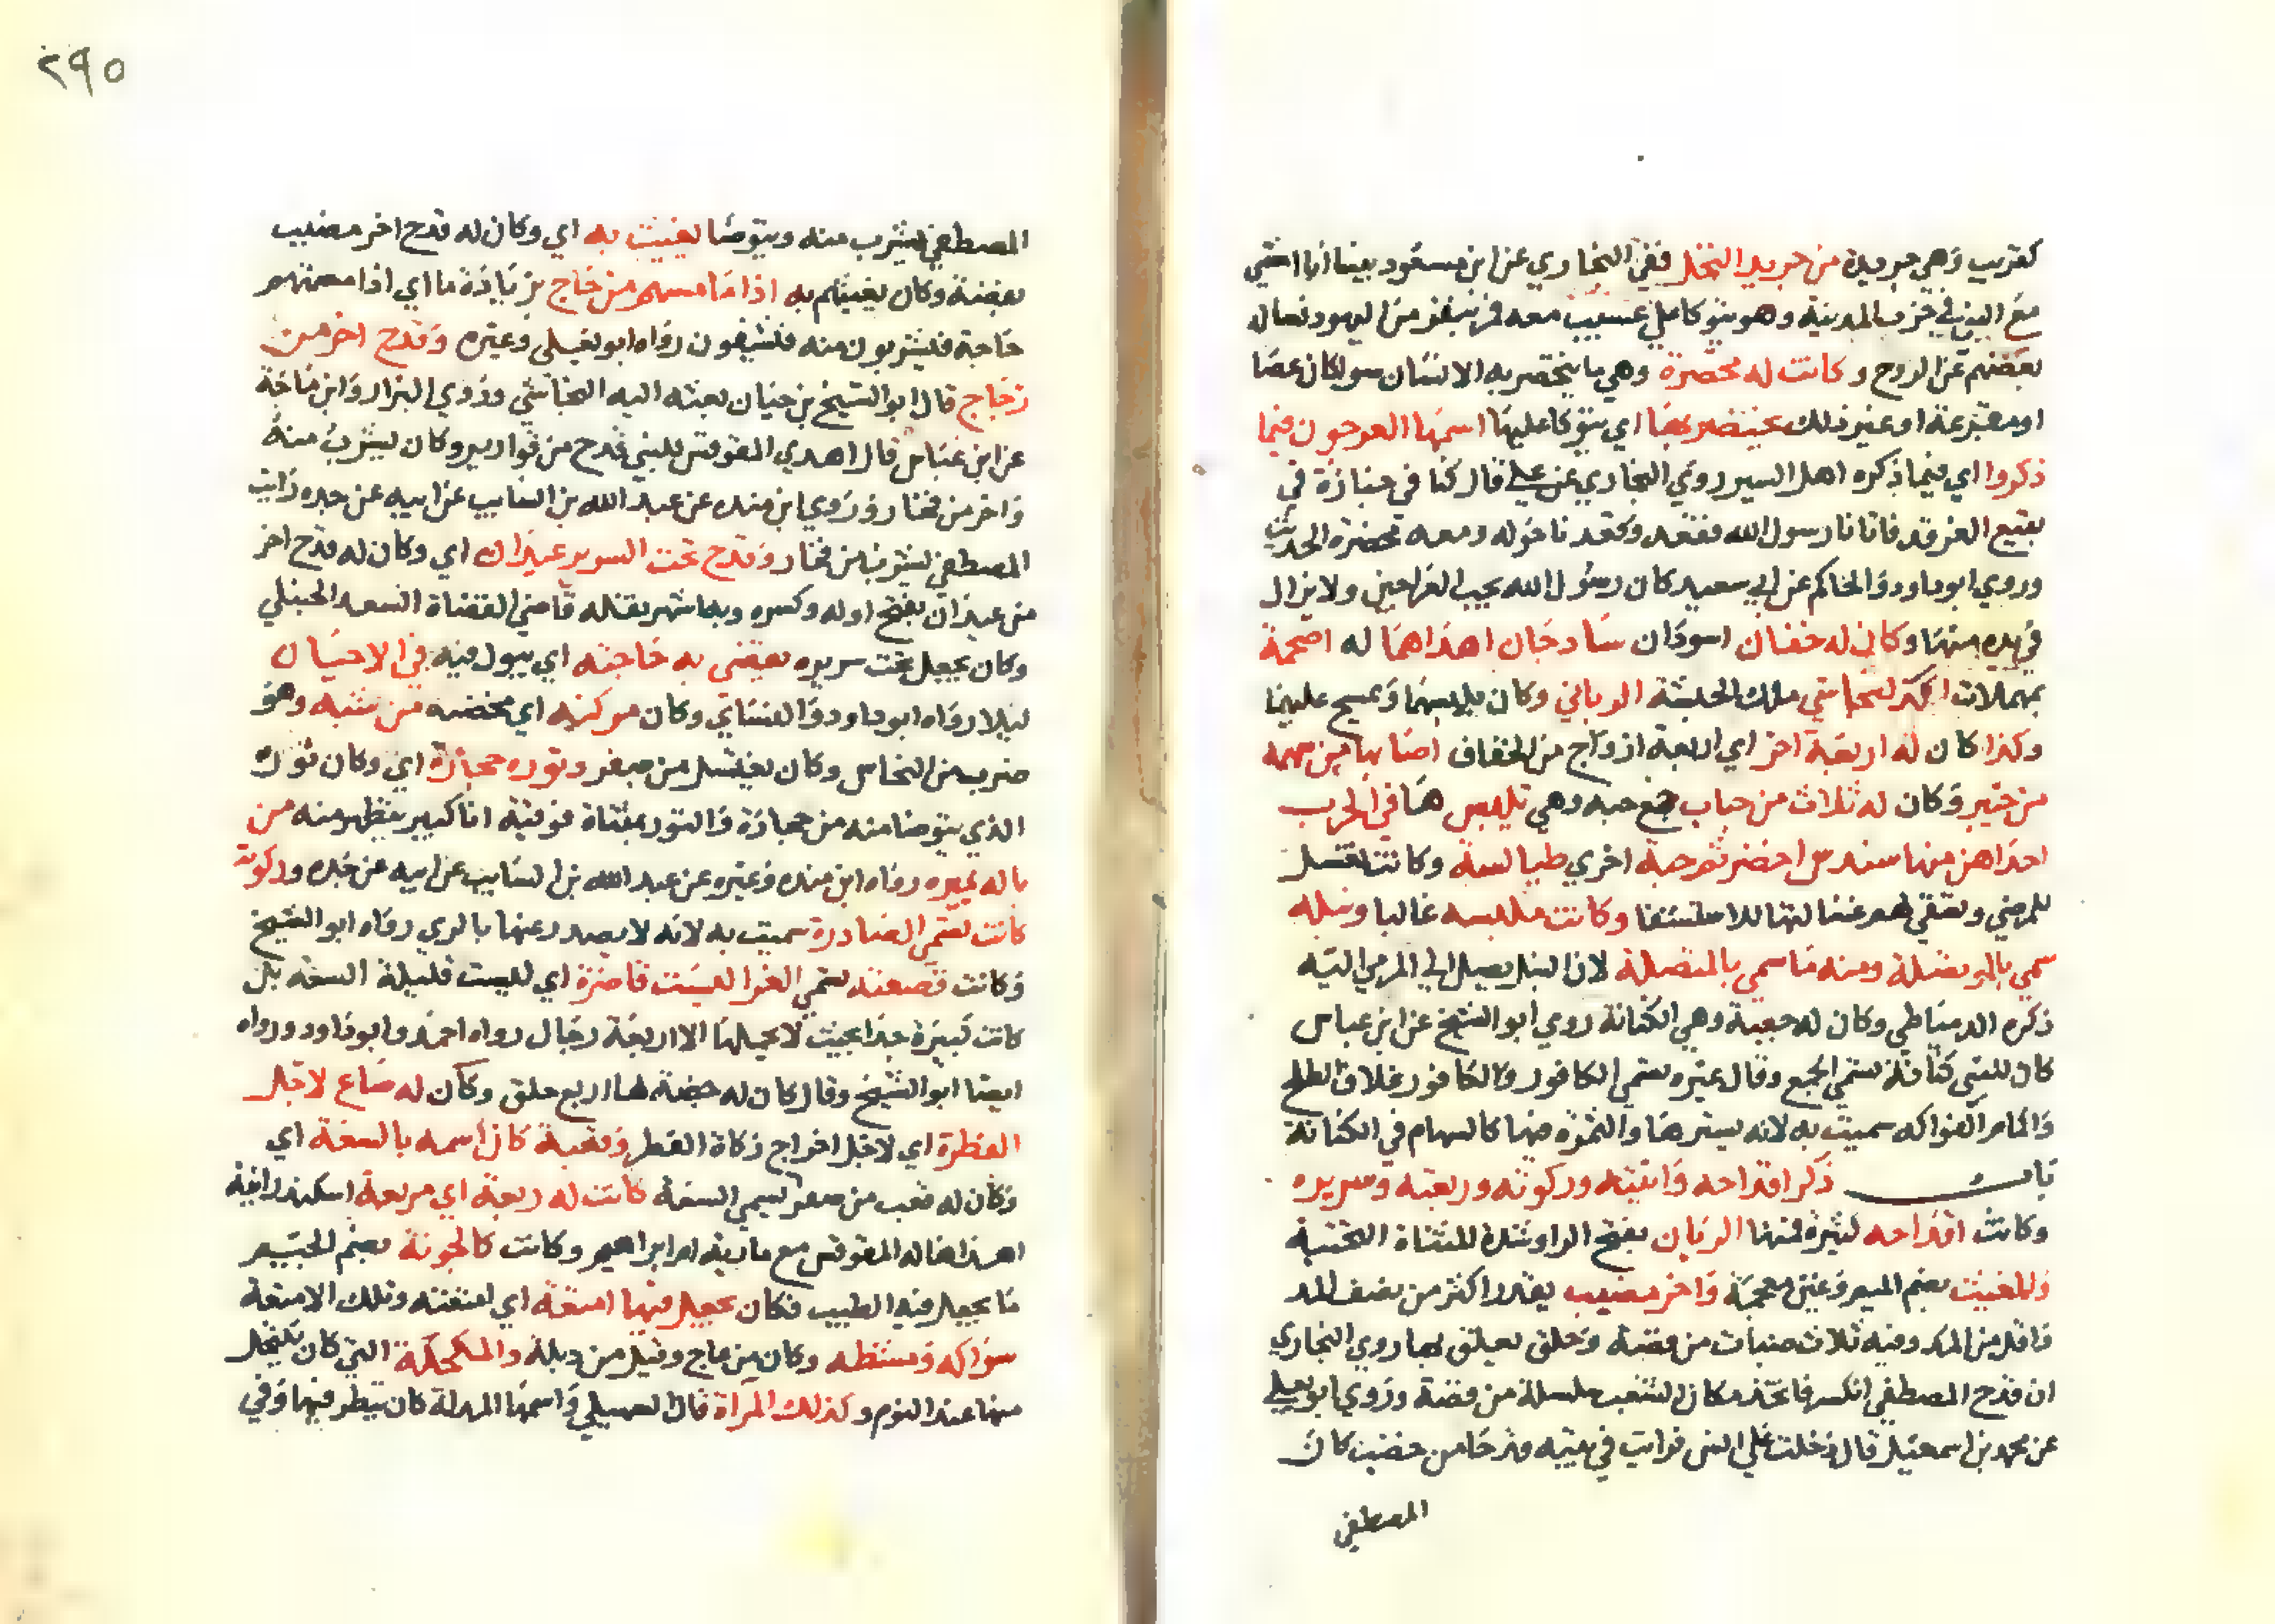 كقريب وهي جريدة من جريد النخل ففي البخاري عن ابن مسعود بينا انا امشي
مع النبي في خرب المدينة وهو يتوكا على عسيب معه فمر بنفر من اليهود فساله
بعضهم عن الروح وكانت له مخصرة وهي ما يختصر به الانسان سوا كان عصا
او مقرعة او غير ذلك يختصر بها اي يتوكا عليها اسمها العرجون فيما
ذكروا اي فيما ذكره اهل السير روي البخاري عن علي قال كنا في جنازة في
بقيع الغرقد فاتانا رسول الله فقعد وقعدنا حوله ومعه مخصرة الحديث
وروي ابو داود والحاكم عن ابي سعيد كان رسول الله يحب العراجين ولا يزال
في يده منها وكان له خفان اسودان ساذجان اهداهما له اصحمة
بمهملات النجاشي ملك الحبشة الرباني وكان يلبسهما ويمسح عليهما
وكذا كان له اربعة اخر اي اربعة ازواج من الخفاف اصابها من سهمه
من خيبر وكان له ثلاث من جباب جمع جبه وهي تلبس ها في الحرب
احداهن منها سندس اخضر ثم جبة اخري طيالسة وكانت تغسل
للمرضي وتسقي لهم غسالتها للاستشفا وكانت ملبسه غالبا ونبله
سمي بالموتصلة ومنه ما سمي بالمتصلة لان النبل يصل الي المرمي اليه
ذكره الدمياطي وكان له جعبة وهي الكنانة روي ابو الشيخ عن ابن عباس
كان للنبي كنانة تسمي الجمع وقال غيره تسمي الكافور والكافور غلاف الطلع
واكمام الفواكه سميت به لانه يسترها والثمرة فيها كالسهام في الكنانة
باب ذكر اقداحه وانيته وركوته وربعته وسريره
وكانت اقداحه كثيرة فمنها الريان بفتح الرا وشدة المثناة التحتية
والمغيث بضم الميم وغين معجمة واخر مضبب يقدر اكثر من نصف المد
واقل من المد وفيه ثلاث ضبات من فضة وحلق يعلق بها روي البخاري
ان قدح المصطفي انكسر فاتخذ مكان الشعب سلسلة من فضة وروي ابو يعلي
عن محمد بن اسمعيل قال دخلت علي انس فرايت في بيته قدحا من خشب كان
المصطفي
٢٩٥
المصطفي يشرب منه ويتوضا يغيث به اي وكان له قدح اخر مضبب
بفضة وكان يغيثهم به اذا ما مسهم من حاج بزيادة ما اي اذا مستهم
حاجة فيشربون منه فيشفون رواه ابو يعلي وغيره وقدح اخر من
زجاج قال ابو الشيخ بن حيان بعثه اليه النجاشي وروي البزار وابن ماجة
عن ابن عباس قال اهدي المقوقس للنبي قدح من قوارير وكان يشرب منه
واخر من فخار وروي ابن منده عن عبد الله بن السايب عن ابيه عن جده رايت
المصطفي يشرب من فخار وقدح تحت السرير عيدان اي وكان له قدح اخر
من عيدان بفتح اوله وكسره وبما شهر بقتله قاضي القضاة السعد الحنبلي
وكان يجعل تحت سريره يقضي به حاجته اي يبول فيه في الاحيان
ليلا رواه ابو داود والنسائي وكان مركنه اي مخضبه من شبه وهو
ضرب من النحاس وكان يغتسل من صفر وتوره حجارة اي وكان توره
الذي يتوضا منه من حجارة والتور بمثناة فوقية انا كبير يتطهر منه من
ناله بميره رواه ابن منده وغيره عن عبد الله بن السايب عن ابيه عن جده وركوته
كانت تسمي الصادرة سميت به لانه لا يصدر عنها بالري رواه ابو الشيخ
وكانت قصعته تسمي الغرا ليست قاصرة اي ليست قليلة السعة بل
كانت كبيرة جدا بحيث لا يحملها الا اربعة رجال رواه احمد وابو داود ورواه
ايضا ابو الشيخ وقال كان له جفنة لها اربع حلق وكان له صاع لاجل
الفطرة اي لاجل اخراج زكاة الفطر وقعبة كان اسمه بالسعة اي
وكان له قعب من صفر يسمي السعة كانت له ربعة اي مربعة اسكندرانية
اهداها له المقوقس مع مارية ام ابراهيم وكانت كالجونة بضم الجيم
ما يجعل فيه الطيب فكان يجعل فيها امتعة اي امتعته وتلك الامتعة
سواكه ومشطه وكان من عاج وقيل من ذبلة والمكحلة التي كان يكتحل
منها عند النوم وكذلك المرآة قال السهيلي واسمها المدلة كان ينظر فيها وفي